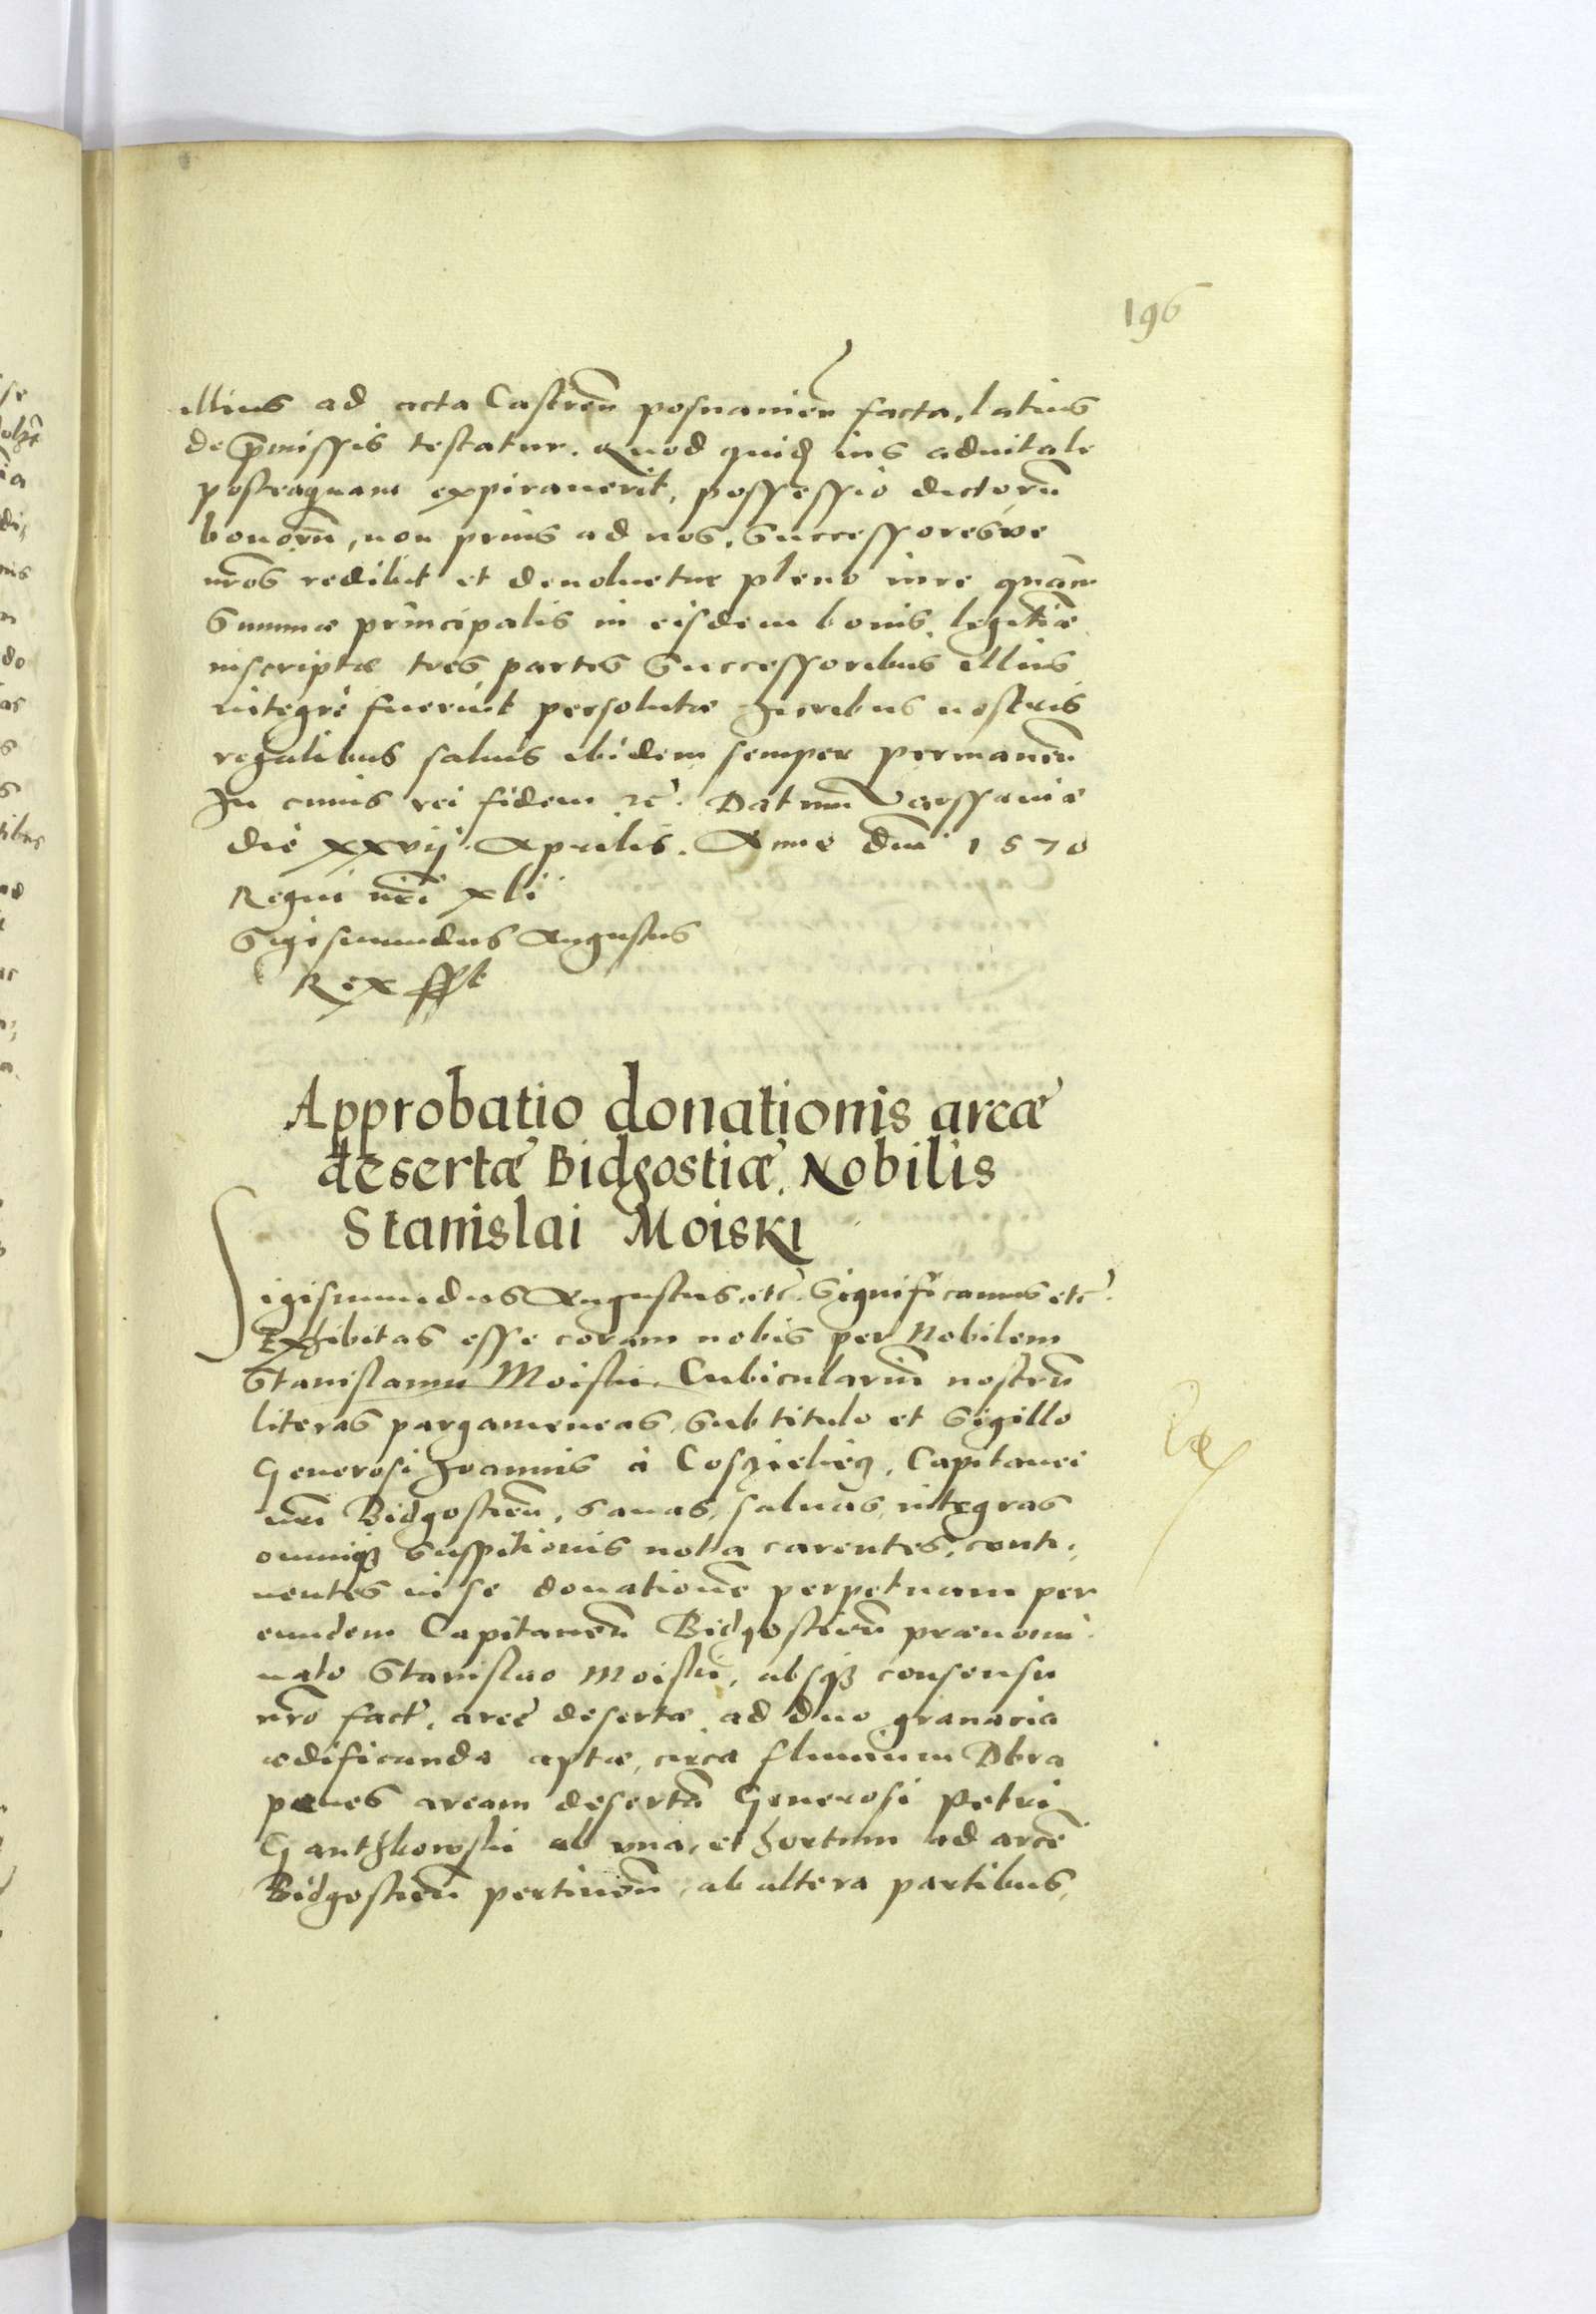 196
illius ad acta Castren̄ posnanien̄ facta, latius
de p̄missis testatur. Quod quid ius aduitale
posteaquam expirauerit, possessio dictorū
bonorū, non prius ad nos, Successoresve
nr̄os redibit et deuoluetur pleno iure quàm
Summæ principalis in eisdem bonis legitīe
inscriptæ tres partes Successoribus illius
integrè fuerint persolutæ Iuribus nostris
regalibus saluis ibidem semper permanen̄
In cuius rei fidem etc̄. Datum Varssauiæ
die xxvij. Aprilis. Anno dn̄i 1570
Regni nr̄i xli
Sigismundus Augustus
Rex sspt
Approbatio donationis areæ
desertæ Bidgostiæ, Nobilis
Stanislai Moiski
Sigismundus Augustus etc̄. Significamus etc̄.
Exhibitas esse coram nobis per Nobilem
Stanislaum Moiski Cubiculariū nostrū
literas pargameneas, sub titulo et Sigillo
Generosi Joannis à Cosczieliecz, Capitanei
nr̄i Bidgostien̄, sanas, saluas, integras
omniq; suspitionis nota carentes, conti,
nentes in se donationē perpetuam per
eundem Capitaneū Bidgostien̄ prænomi
nato Stanislao Moiski, absq; consensu
nr̄o fact. areæ desertæ ad duo granaria
ædificanda aptæ, circa fluuium Dbra
penes aream desertā Generosi Petri
Ganthkowski ab vna, et hortum ad arcē
Bidgostien̄ pertinen̄, ab altera partibus,